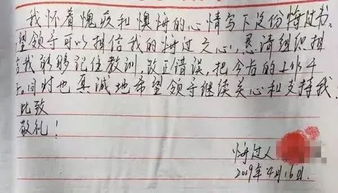 我怀着愧疚和懊悔的心情写下这份悔过书.
望领导可以相信我的悔过之心,恳请组织相
我能够记住教训,改正错误,把今后的工作干
同时也真诚地希望领导继续关心和支持我.
此致
敬礼!
悔过人
2019年4月16日.